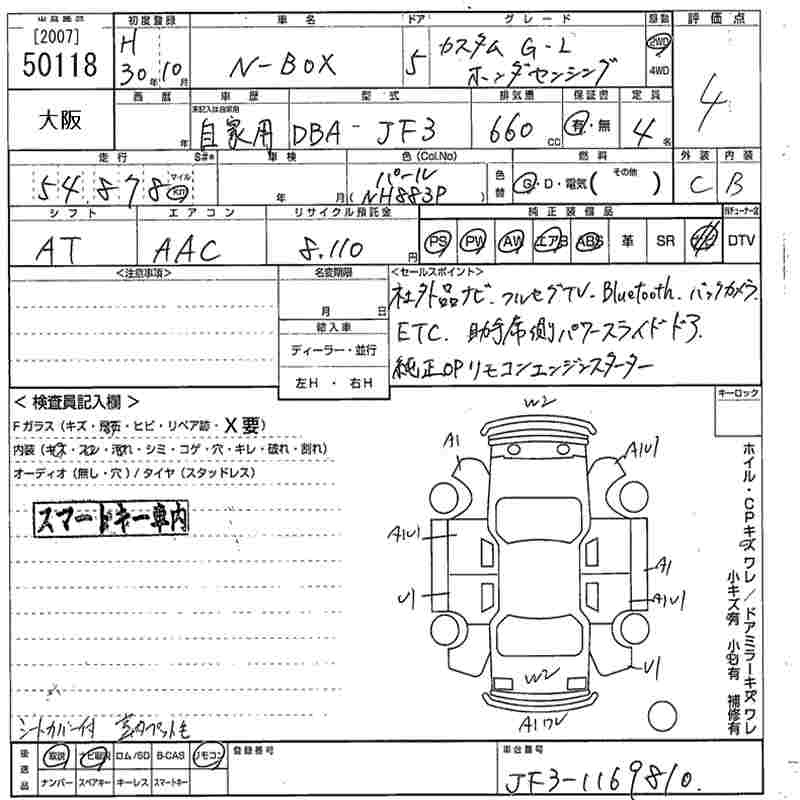 [2007]
50118
大阪
初度登録
H
30年10月
車名
N-BOX
ドア
5
グレード
カスタム G-L
ホンダセンシング
2WD
4WD
評価点
4
西暦
年
車歴
未記入は自家用
自家用
型式
DBA-JF3
排気量
660cc
保証書
有・無
定員
4名
走行
S#*
54,878
マイル
km
車検
年 月
色(Col.No)
パール
(NH883P)
色替
燃料
G・D・電気( その他 )
外装
C
内装
B
シフト
AT
エアコン
AAC
リサイクル預託金
8,110円
純正装備品
PS PW AW エアB ABS 革 SR
DTV
<注意事項>
名変期限
月 日
輸入車
ディーラー・並行
左H ・ 右H
<セールスポイント>
社外品ナビ. フルセグTV. Bluetooth. バックカメラ.
ETC. 助手席側パワースライドドア.
純正OPリモコンエンジンスターター
キーロック
< 検査員記入欄 >
Fガラス(キズ・飛石・ヒビ・リペア跡・X要)
内装(キズ・スレ・汚れ・シミ・コゲ・穴・キレ・破れ・割れ)
オーディオ(無し・穴)/タイヤ(スタッドレス)
スマートキー車内
W2
A1
A1U1
A1U1
A1
U1
A1U1
U1
W2
A1ワレ
ホイル・CPキズワレ/ドアミラーキズワレ
小キズ有 小凹有 補修有
シートカバー付
後送品
取説
ナビ取説
ロム/SD
B-CAS
リモコン
ナンバー
スペアキー
キーレス
スマートキー
登録番号
車台番号
JF3-1169810.